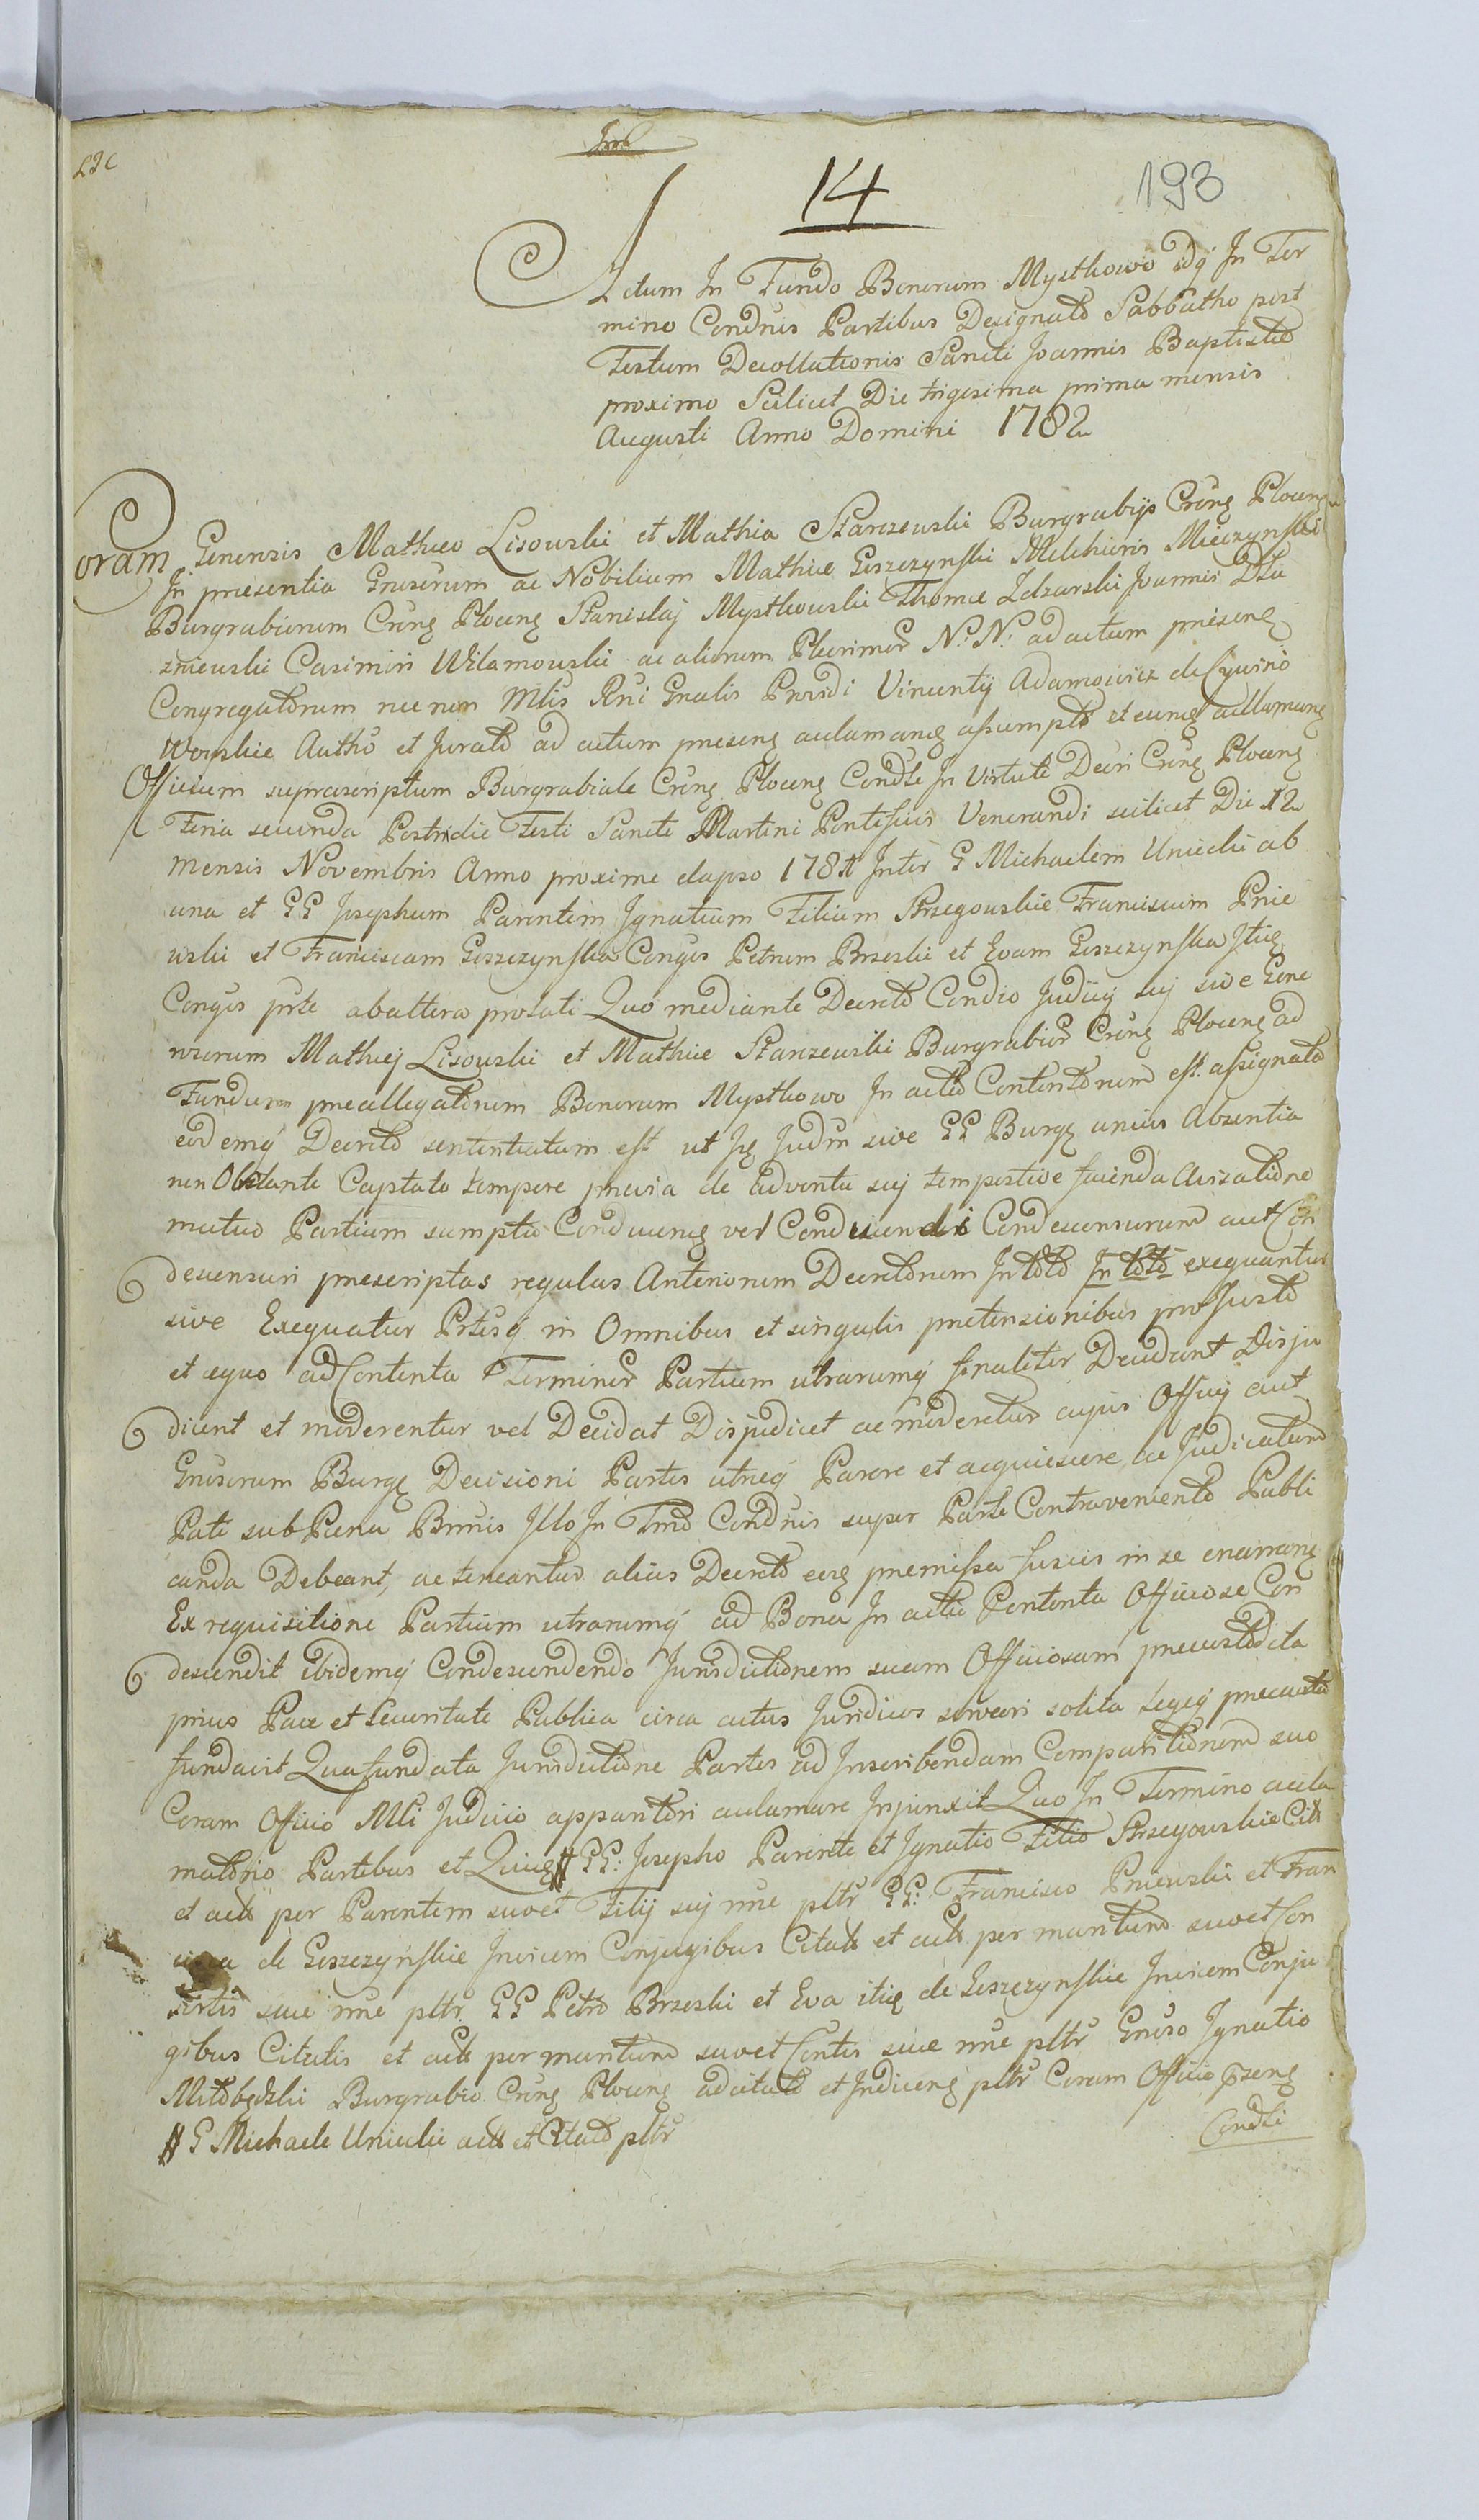 14
193
Actum In Fundo Bonorum Mysthowo Idq In Ter
mino Condnis Partibus Designato Sabbatho post
Festum Decollationis Sancti Joannis Baptistae
proximo Scilicet Die trigesima prima mensis
Augusti Anno Domini 1782
Coram Generosis Mathaeo Lisowski et Mathia Starzewski Burgrabijs Crens Plocens
In praesentia Gnrosorum ac Nobilium Mathiae Goszczynski Melchioris Mieczynski
Burgrabiorum Crens Plocens Stanislaj Mysthowski Thomae Zdzarski Joannis Dłu
zniewski Casimiri Wilamowski ac aliorum Plurimor N: N: ad actum praesens
Congregatorum nec non Mlis Rni Gnalis Providi Vincentij Adamowicz de
Worskie Autho et Jurato ad actum praesens aclamans assumpto et eund aclamans
Officium suprascriptum Burgrabiale Crens Plocens Condle In Virtute Decri Crens Plocens
Feria secunda Postridie Festi Sancti Martini Pontificis Venerandi scilicet Die 12
mensis Novembris Anno proxime elapso 1781 Inter G Michaelem Uniecki ab
una et GG Josephum Parentem Ignatium Filium Strzegowskie Franciscum Pnie
wski et Franciscam Goszczynska Conges Petrum Brzeski et Evam Goszczynska Itid
Conges prte ab altera prolati Quo mediante Decreto Condio Judicij sui sive Gene
rosorum Mathiej Lisowski et Mathiae Starzewski Burgrabior Crens Plocens ad
Fundum praeallegatorum Bonorum Mysthowo In acto Contentorum est assignato
eodemq Decreto sententiatum est ut Judm sive GG Burg unius Absentia
non Obstante Captato tempore praevia de adventu sui tempestive facienda Avisatione
mutuo Partium sumptu Conducens vel Conducendi Condescensurum aut Con
descensuri praescriptas regulas Anteriorum Decretorum In toto In toto exequantur
sive Exequatur Prtesq in Omnibus et singulis praetensionibus pro Justo
et aequo ad Contenta Terminor Partium utrarumq finaliter Decidant Disju
dicent et moderentur vel Decidat Disjudicet ac moderetur cujus Officij aut
Gnrosorum Burg Decisioni Partes utraeq Parere et acquiescere ac Judicatum
Pati sub Paena Bnnis Illo In Tmo Condnis super Parte Contraveniente Publi
canda Debeant, ac teneantur alias Decreto eod praemissa fusius in se enarrans
Ex requisitione Partium utrarumq ad Bona In actu Contenta Officiose Con
descendit ibidemq Condescendendo Jurisdictionem suam Officiosam praecustodita
prius Pace et Securitate Publica circa actus Juridicos servari solita Legeq praecauta
fundavit Qua fundata Jurisdictione Partes ad Inscribendam Comparitionem suo
Coram Officio Mli Judicio apparitori aclamare Injunxit Quo In Termino acla
matorio Partibus et Quid # GG: Josepho Parente et Ignatio Filio Strzegowskie Citt
et actt per Parentem suo et Filij sui nne pltr GG: Francisco Pniewski et Fran
cisca de Goszczynskie Invicem Conjugibus Citatt et actt per maritum suo et Con
sortis suae nne pltr GG Petro Brzeski et Eva itid de Goszczynskie Invicem Conju
gibus Citatis et actt per maritum suo et Contis suae nne pltr Gnroso Ignatio
Milobędzki Burgrabio Crens Plocens adcitato et Indicens pltr Coram Officio Prsens
# G Michaele Uniecki actt et Citato pltr
Condli